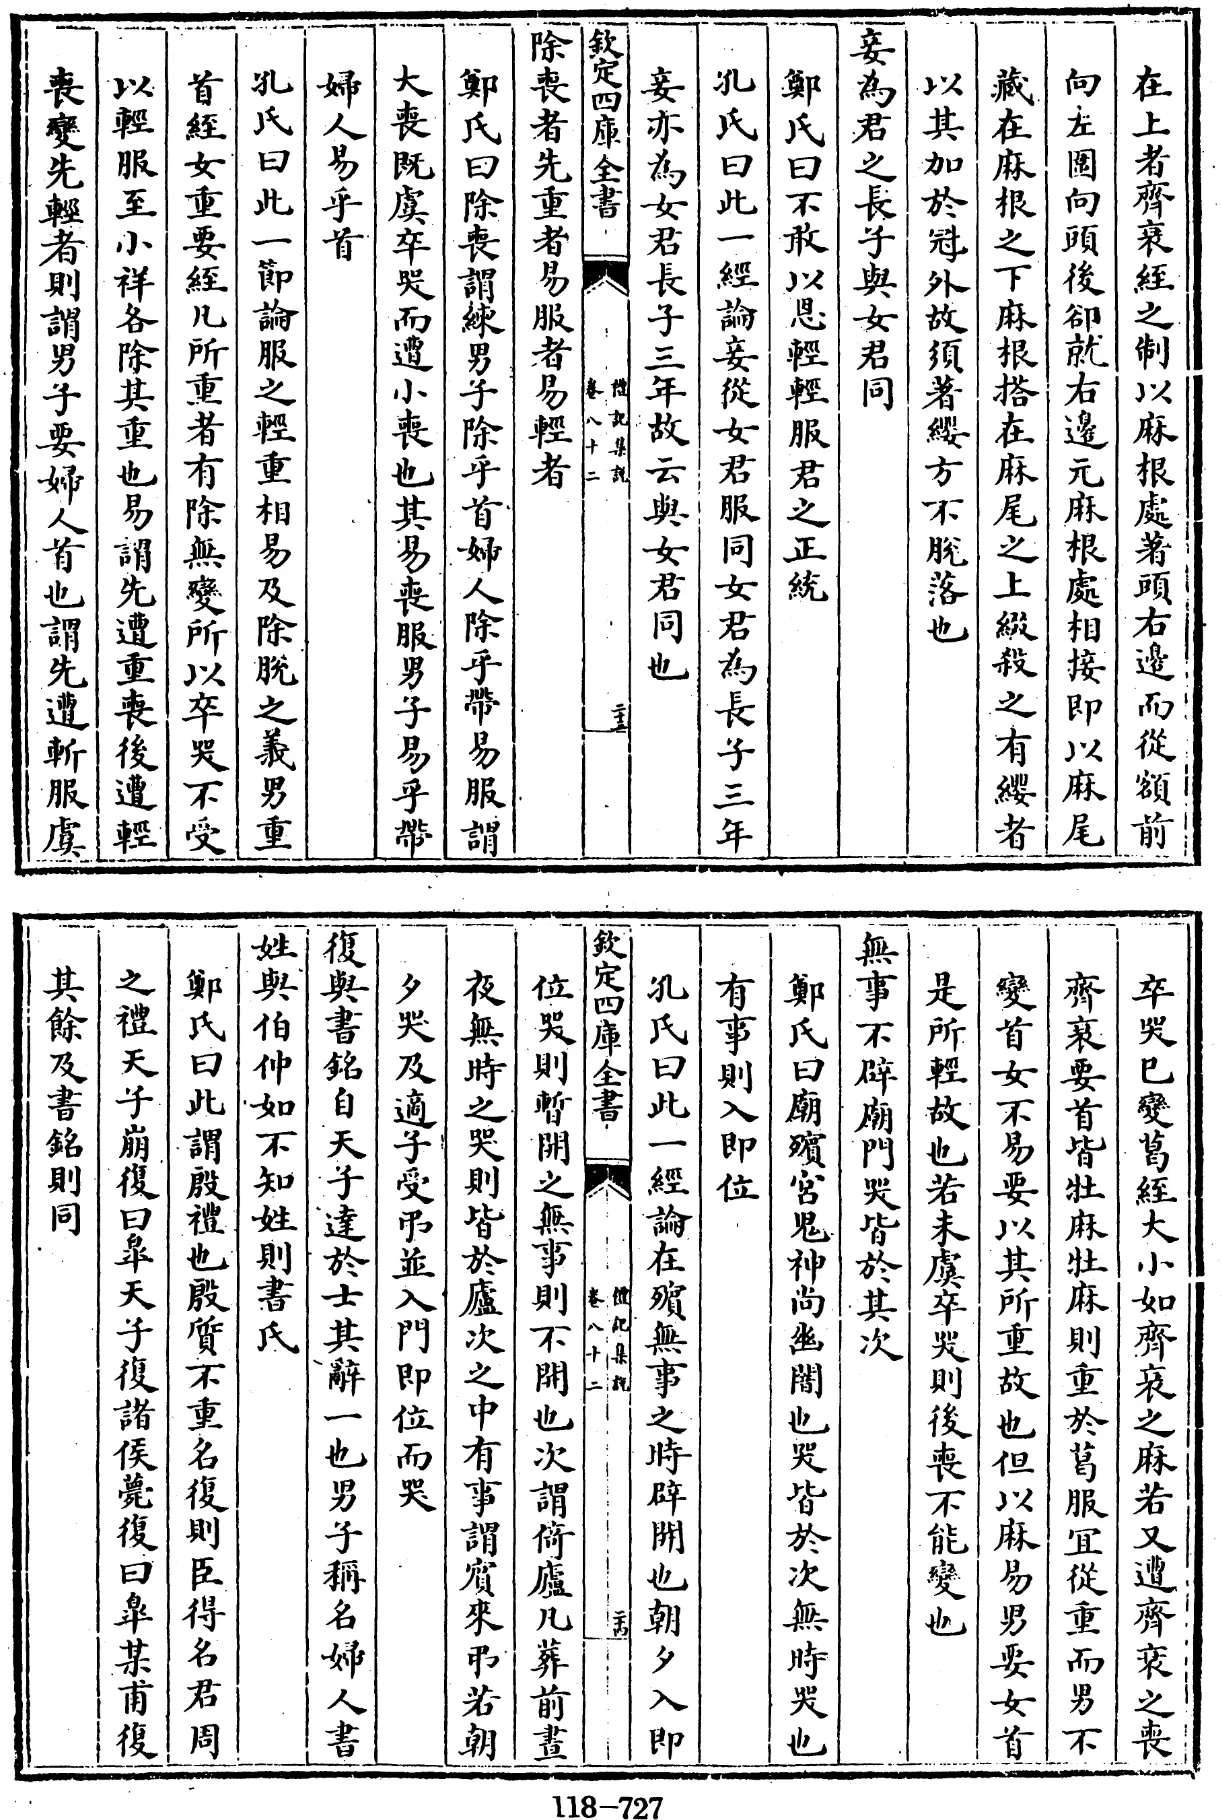 在上者齊衰絰之制以麻根處著頭右邉而從額前
向左圍向頭後卻就右邉元麻根處相接即以麻尾
藏在麻根之下麻根搭在麻尾之上綴殺之有纓者
以其加於冠外故須著纓方不脫落也
妾為君之長子與女君同
鄭氏曰不敢以恩輕輕服君之正統
孔氏曰此一經論妾從女君服同女君為長子三年
妾亦為女君長子三年故云與女君同也
欽定四庫全書
禮記集說
卷八十二
二十五
除喪者先重者易服者易輕者
鄭氏曰除喪謂練男子除乎首婦人除乎帶易服謂
大喪既虞卒哭而遭小喪也其易喪服男子易乎帶
婦人易乎首
孔氏曰此一節論服之輕重相易及除脫之義男重
首絰女重要絰凡所重者有除無變所以卒哭不受
以輕服至小祥各除其重也易謂先遭重喪後遭輕
喪變先輕者則謂男子要婦人首也謂先遭斬服虞
卒哭已變葛絰大小如齊衰之麻若又遭齊衰之喪
齊衰要首皆牡麻牡麻則重於葛服宜從重而男不
變首女不易要以其所重故也但以麻易男要女首
是所輕故也若未虞卒哭則後喪不能變也
無事不辟廟門哭皆於其次
鄭氏曰廟殯宮鬼神尚幽闇也哭皆於次無時哭也
有事則入即位
孔氏曰此一經論在殯無事之時辟開也朝夕入即
欽定四庫全書
禮記集說
卷八十二
二十六
位哭則暫開之無事則不開也次謂倚廬凡葬前晝
夜無時之哭則皆於廬次之中有事謂賓來弔若朝
夕哭及適子受弔並入門即位而哭
復與書銘自天子達於士其辭一也男子稱名婦人書
姓與伯仲如不知姓則書氏
鄭氏曰此謂殷禮也殷質不重名復則臣得名君周
之禮天子崩復曰皐天子復諸侯薨復曰皐某甫復
其餘及書銘則同
118-727